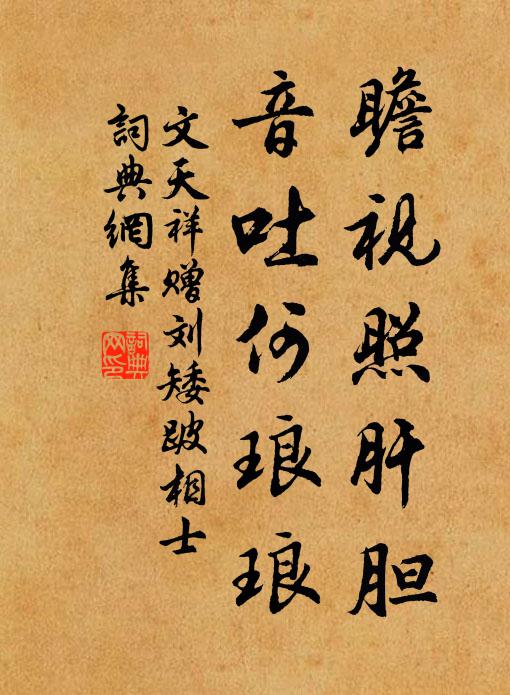 瞻視照肝胆
音吐何琅琅
文天祥赠刘矮跛相士
詞典網集
詞典
网印